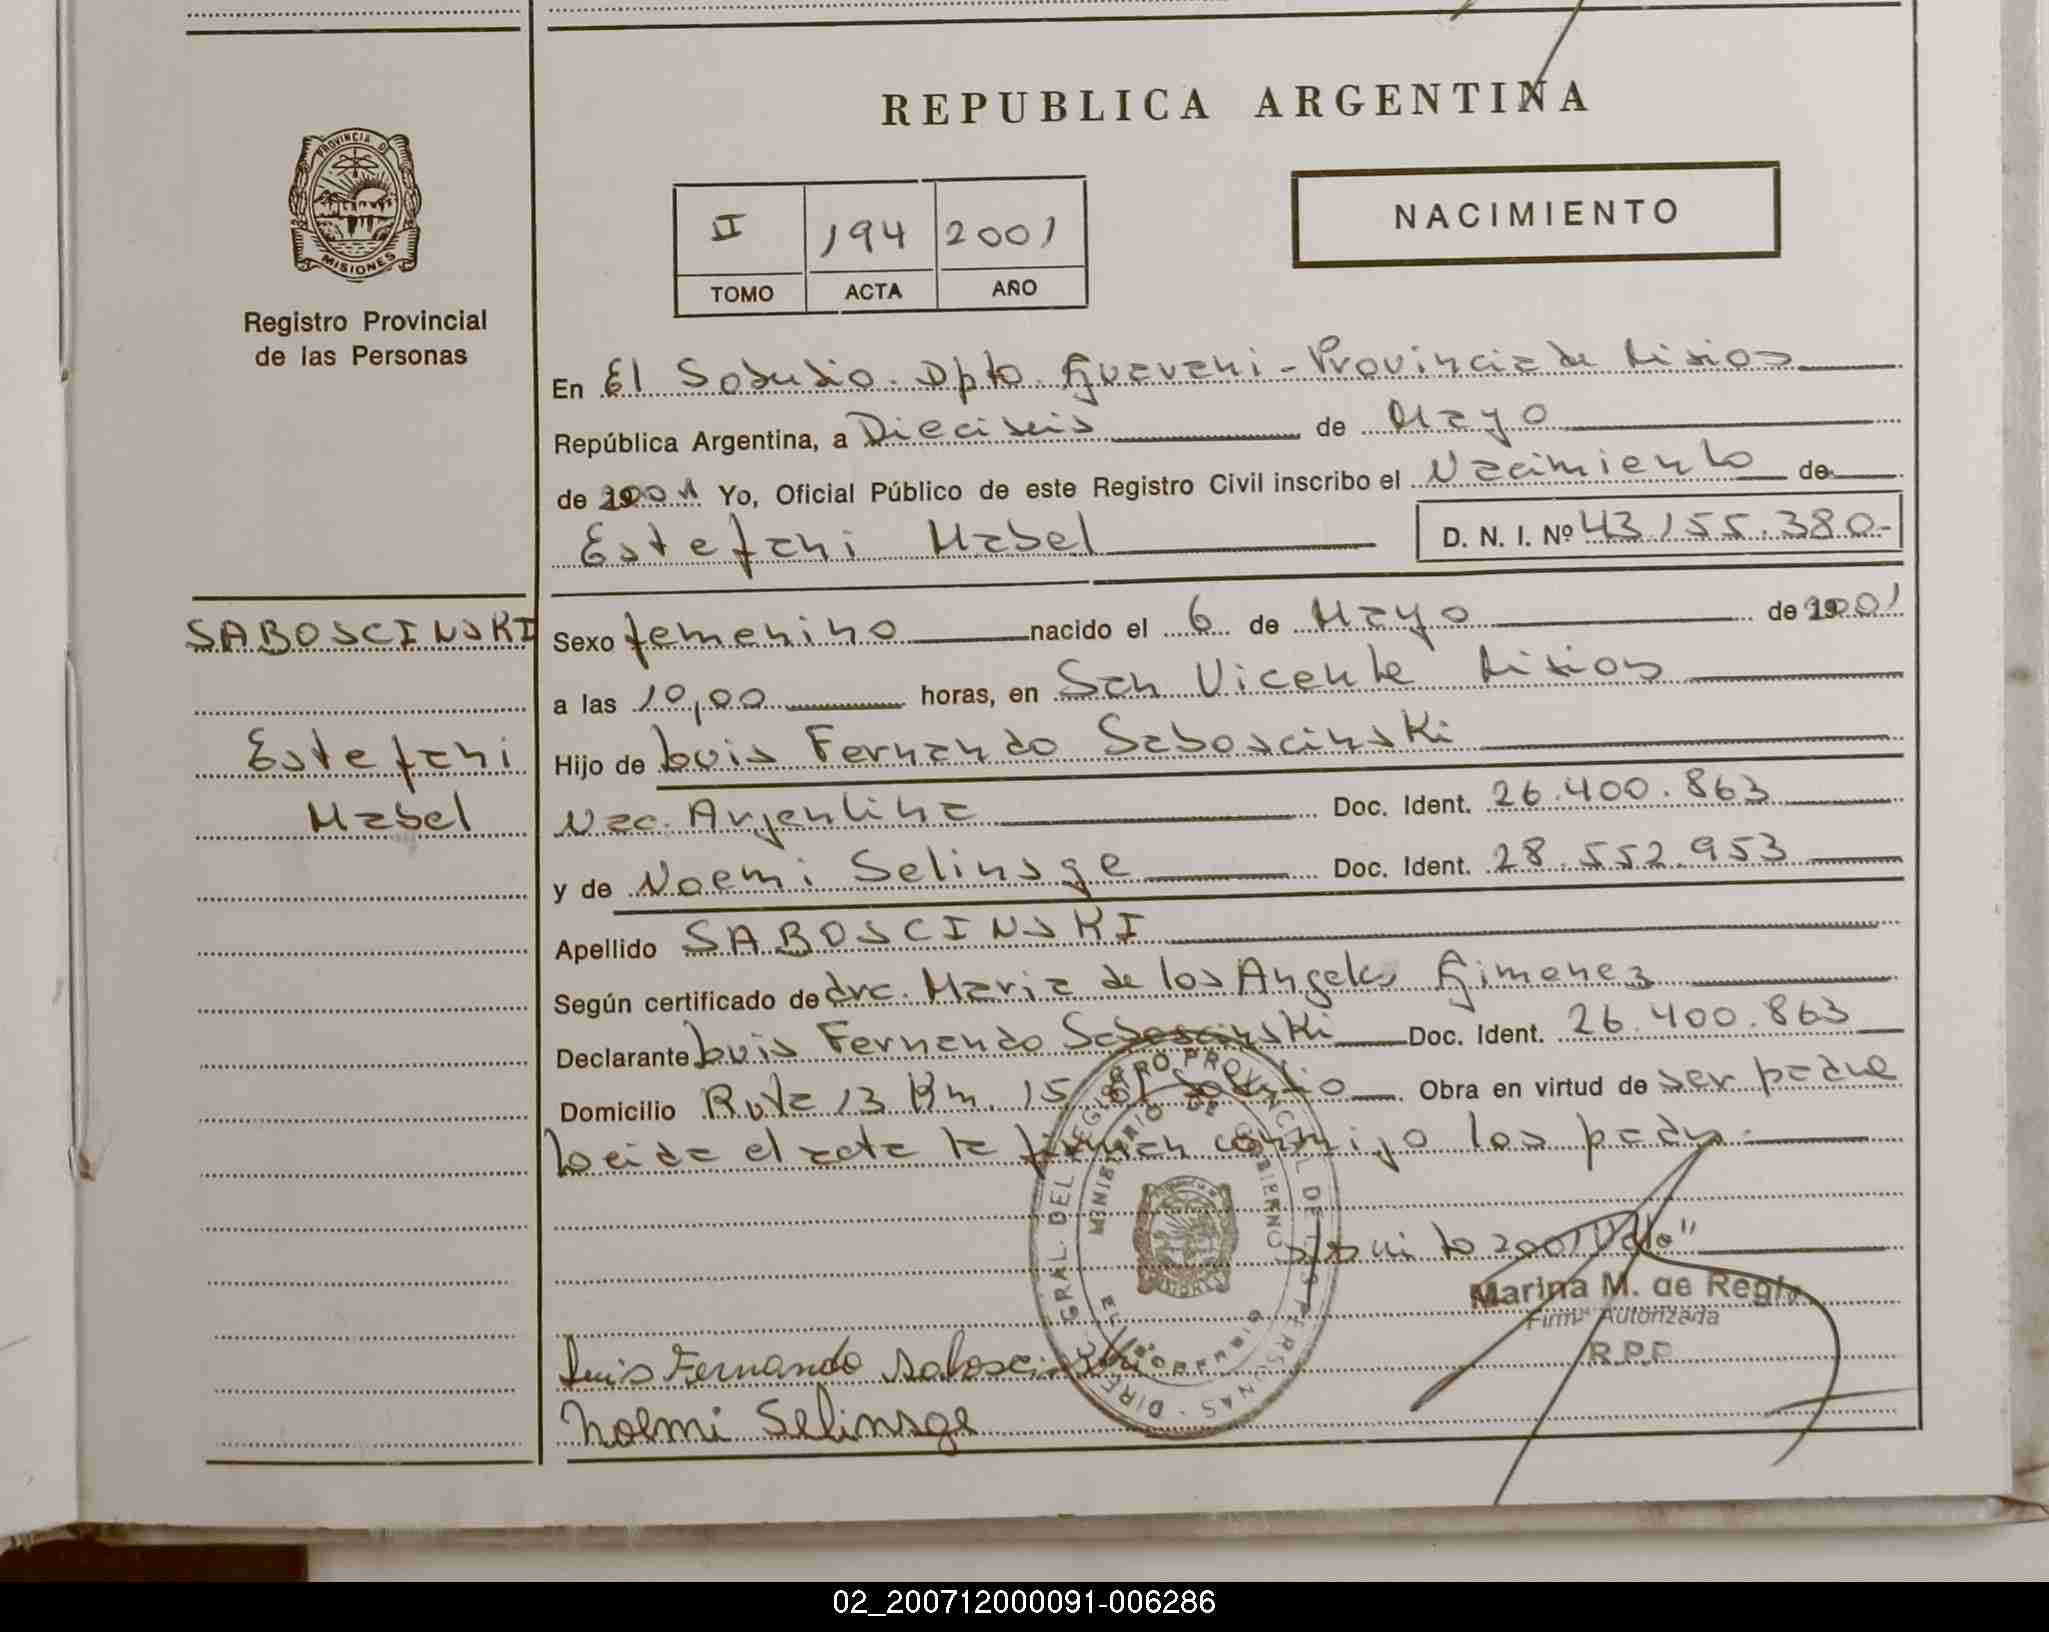 REPUBLICA ARGENTINA
PROVINCIA DE
MISIONES
Registro Provincial
de las Personas
NACIMIENTO
II 194 2001
TOMO ACTA AÑO
En El Soberbio. Dpto. Guarani - Provincia de Misiones
República Argentina, a Dieciseis de Mayo
de 2001 Yo, Oficial Público de este Registro Civil inscribo el Nacimiento de
Estefani Mabel D. N. I. Nº 43.155.380-
SABOSCINSKI
Estefani
Mabel
Sexo femenino nacido el 6 de Mayo de 2001
a las 10,00 horas, en San Vicente Misiones
Hijo de Luis Fernando Saboscinski
Nac. Argentina Doc. Ident. 26.400.863
y de Noemi Selinsge Doc. Ident. 28.552.953
Apellido SABOSCINSKI
Según certificado de dra. Maria de los Angeles Gimenez
Declarante Luis Fernando Saboscinski Doc. Ident. 26.400.863
Domicilio Ruta 13 Km. 15 El Soberbio Obra en virtud de ser padre
Leida el acta la firman conmigo los padres
2001 Vale"
Marina M. de Regly
Firma Autorizada
R.P.P.
Luis Fernando Saboscinski
Noemi Selinsge
DIRECCION GRAL. DEL REGISTRO PROVINCIAL DE LAS PERSONAS
MINISTERIO DE GOBIERNO
EL SOBERBIO
02_200712000091-006286